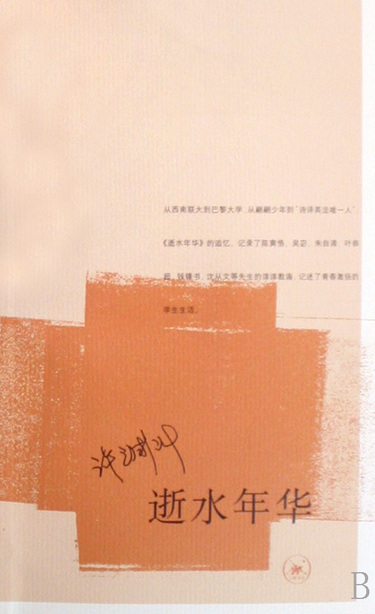 从西南联大到巴黎大学，从翩翩少年到“诗译英法唯一人”，
《逝水年华》的追忆，记录了陈寅恪、吴宓、朱自清、叶公
超、钱锺书、沈从文等先生的谆谆教诲，记述了青春激扬的
学生生活。
许渊冲
逝水年华
B